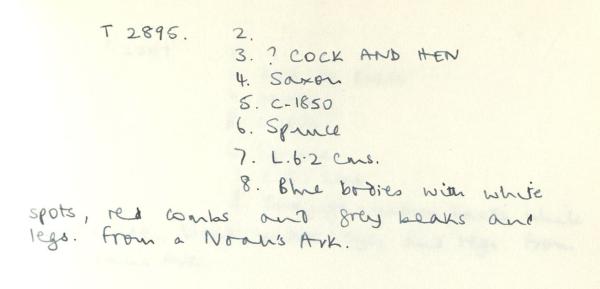 T 2895. 2.
3. ? COCK AND HEN
4. Saxon
5. C-1850
6. Spruce
7. L.6.2 cms.
8. Blue bodies with white
spots, red combs and grey beaks and
legs. From a Noah's Ark.